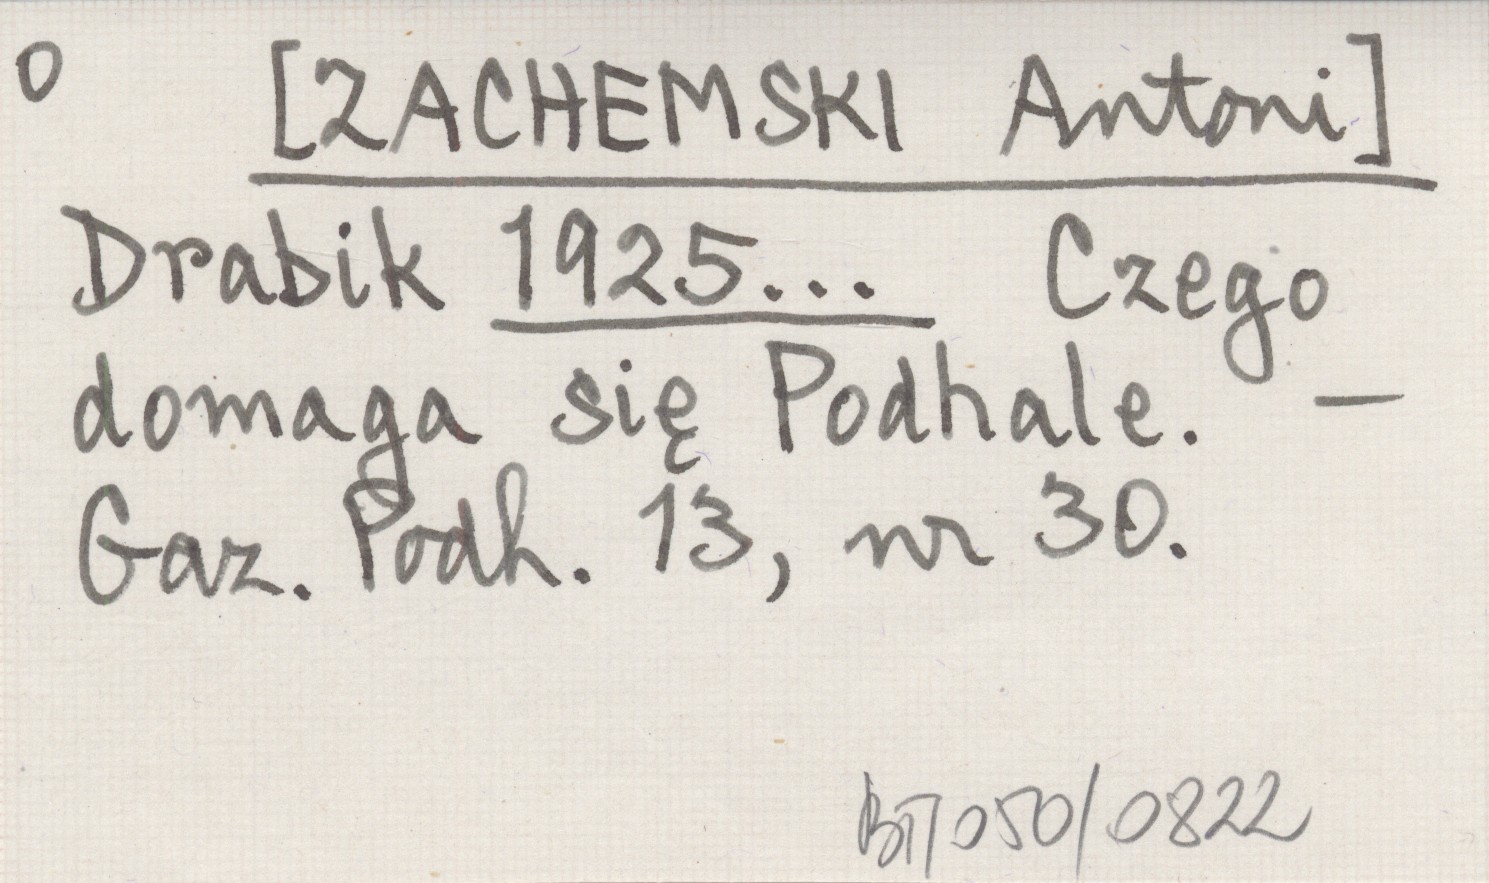 o [ZACHEMSKI Antoni]
Drabik 1925... Czego
domaga się Podhale. —
Gaz. Podh. 13, nr 30.
BT/050/0822